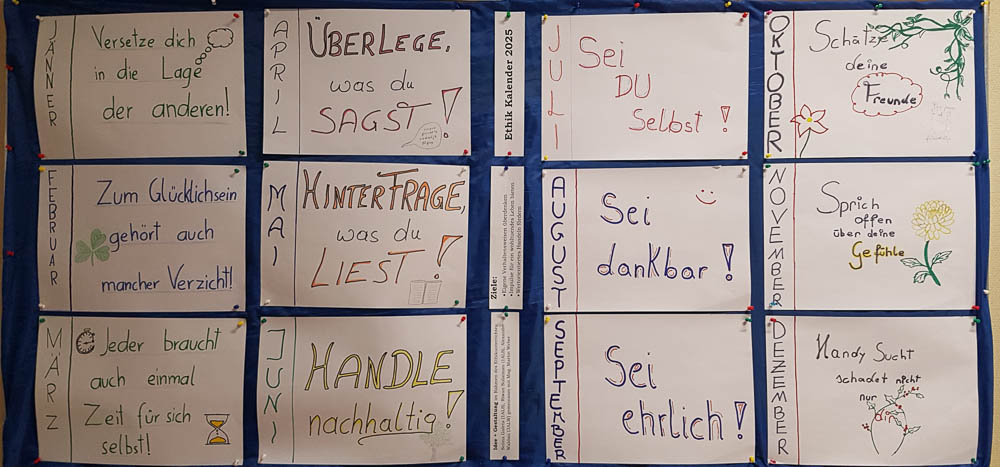 JÄNNER
Versetze dich
in die Lage
der anderen!
FEBRUAR
Zum Glücklichsein
gehört auch
mancher Verzicht!
MÄRZ
Jeder braucht
auch einmal
Zeit für sich
selbst!
APRIL
ÜBERLEGE,
was du
SAGST!
MAI
HINTERFRAGE,
was du
LIEST!
JUNI
HANDLE
nachhaltig!
Ethik Kalender 2025
Ziele:
• Eigene Verhaltensweisen überdenken
• Impulse für ein wohltuendes Leben
• Werteorientiertes Handeln fördern
Idee + Gestaltung im Rahmen des
JULI
Sei
DU
Selbst!
AUGUST
Sei
dankbar!
SEPTEMBER
Sei
ehrlich!
OKTOBER
Schätze
deine
Freunde
NOVEMBER
Sprich
offen
über deine
Gefühle
DEZEMBER
Handy Sucht
schadet nicht
nur
dir